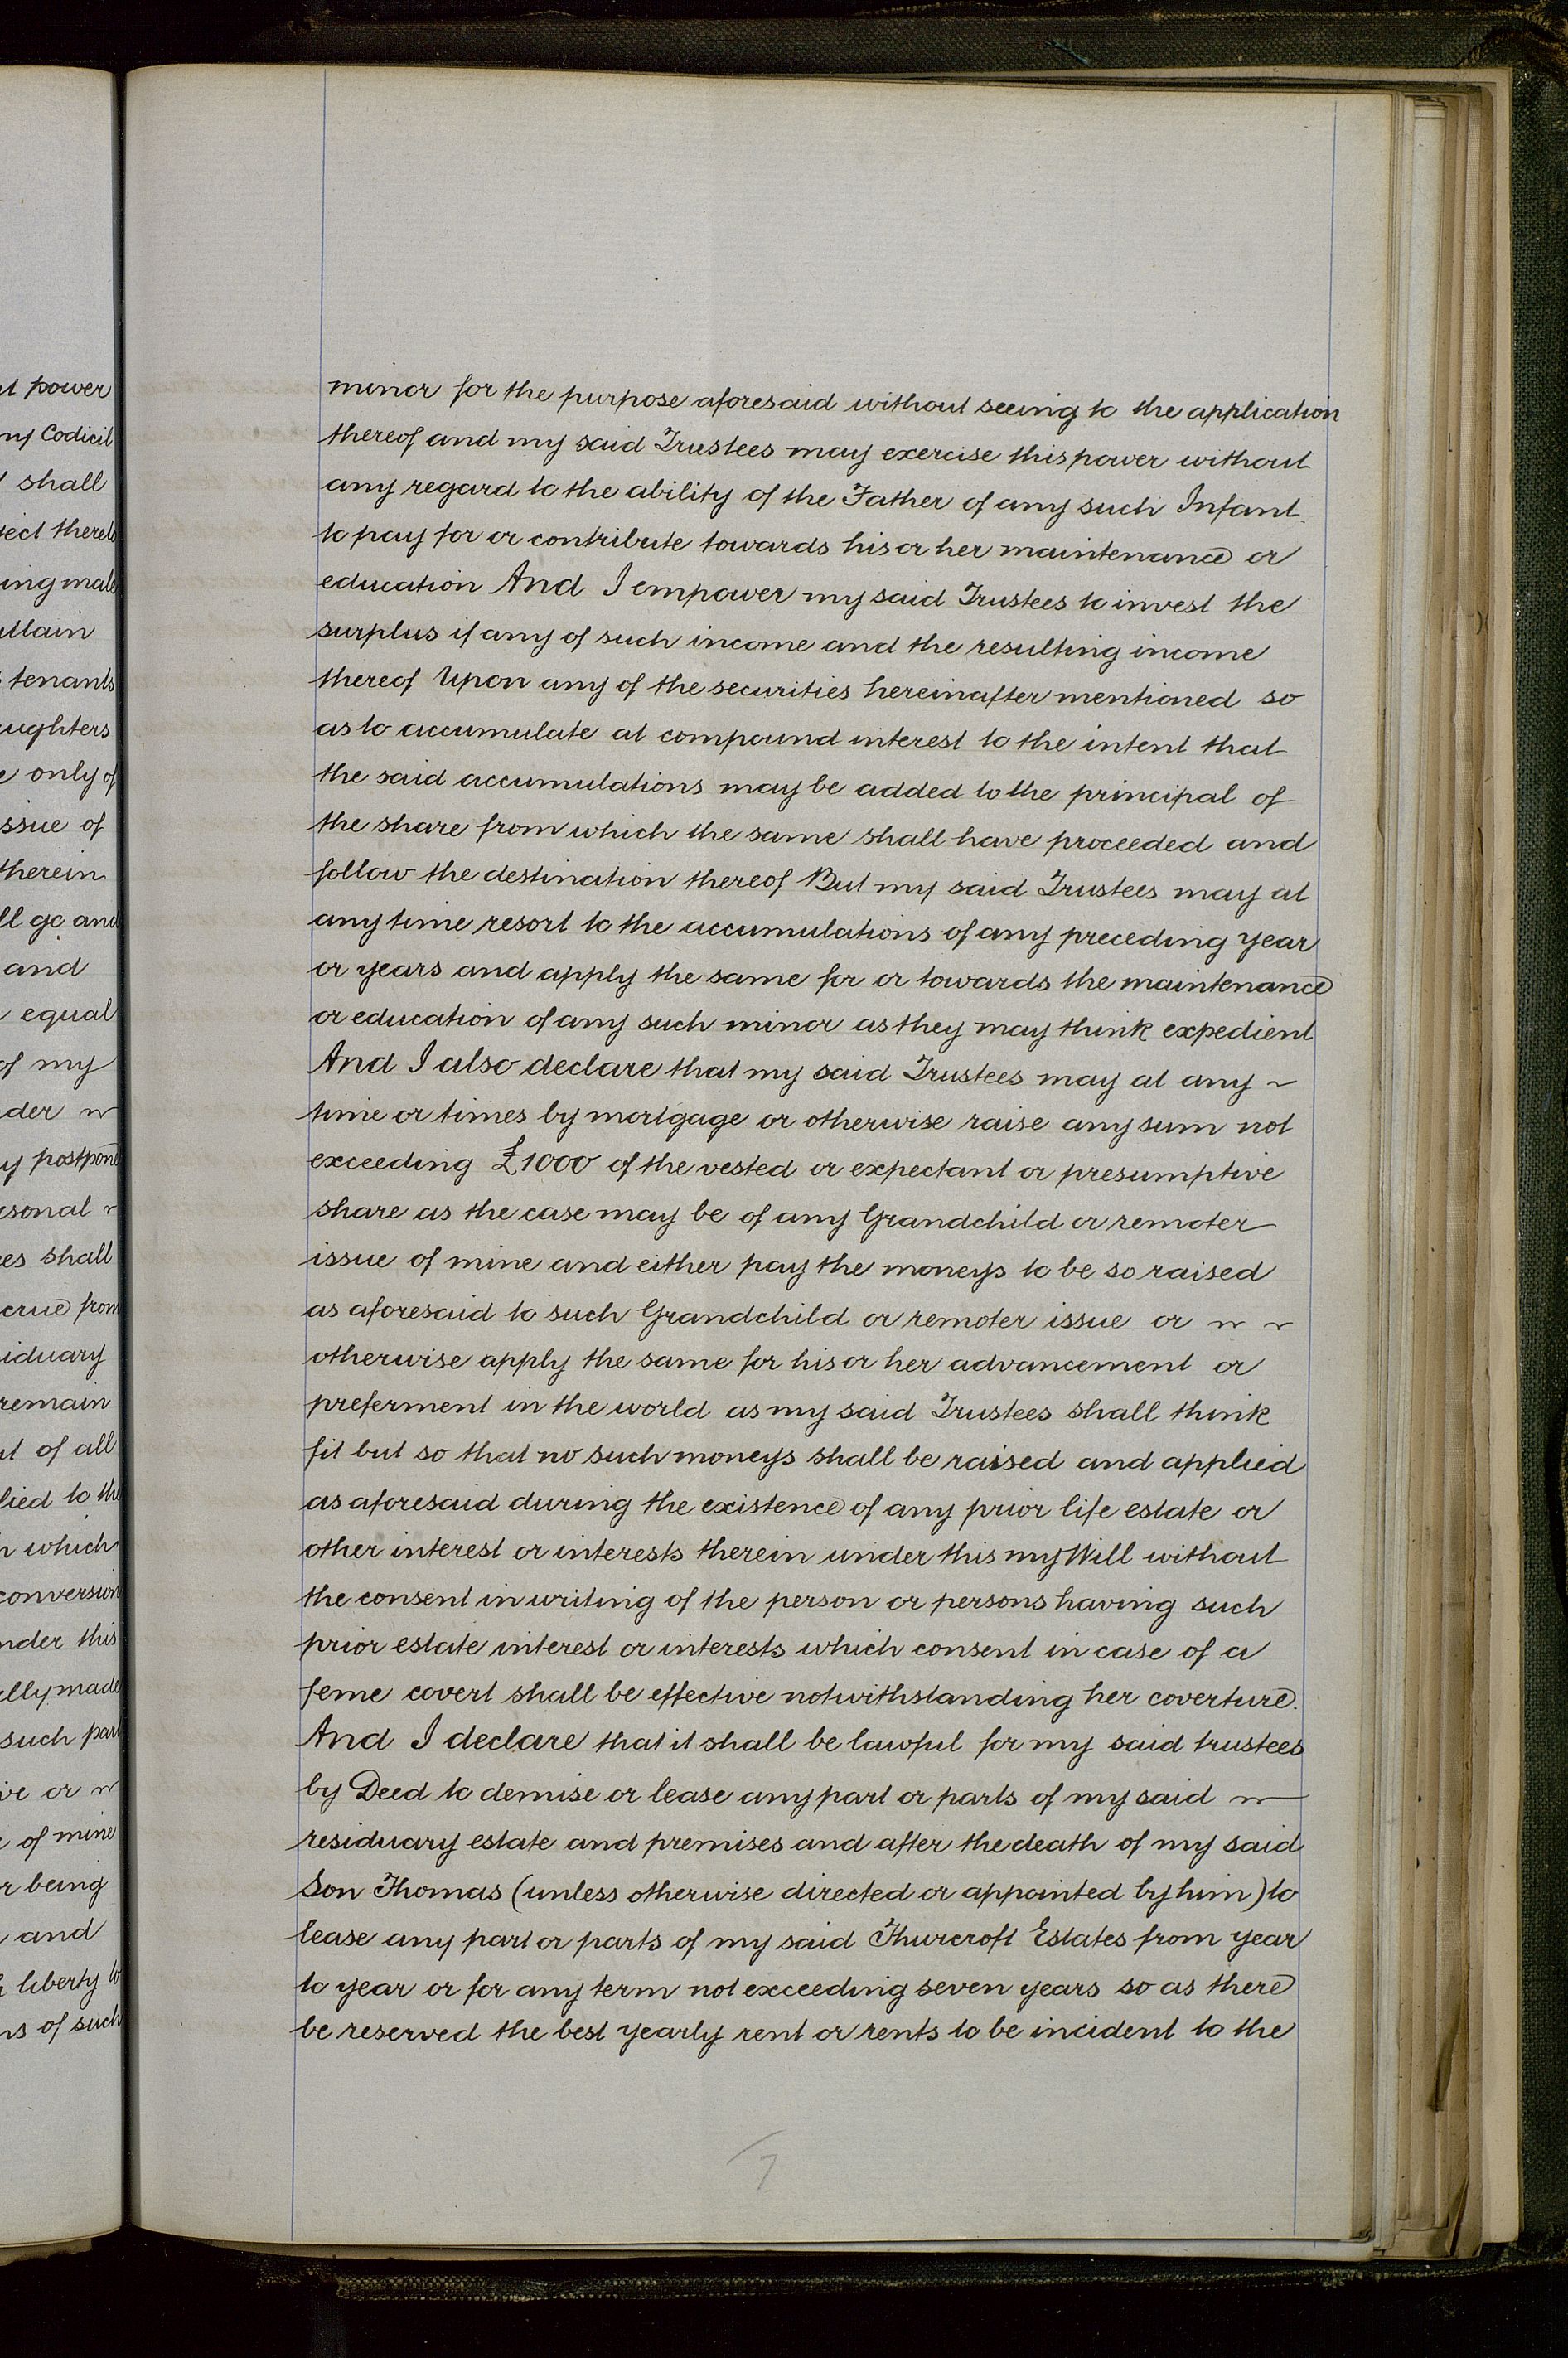 minor for the purpose aforesaid without seeing to the application
thereof and my said Trustees may exercise this power without
any regard to the ability of the Father of any such Infant
to pay for or contribute towards his or her maintenance or
education And I empower my said Trustees to invest the
surplus if any of such income and the resulting income
thereof Upon any of the securities hereinafter mentioned so
as to accumulate at compound interest to the intent that
the said accumulations may be added to the principal of
the share from which the same shall have proceeded and
follow the destination thereof But my said Trustees may at
any time resort to the accumulations of any preceding year
or years and apply the same for or towards the maintenance
or education of any such minor as they may think expedient
And I also declare that my said Trustees may at any
time or times by mortgage or otherwise raise any sum not
exceeding £1000 of the vested or expectant or presumptive
share as the case may be of any Grandchild or remoter
issue of mine and either pay the moneys to be so raised
as aforesaid to such Grandchild or remoter issue or
otherwise apply the same for his or her advancement or
preferment in the world as my said Trustees shall think
fit but so that no such moneys shall be raised and applied
as aforesaid during the existence of any prior life estate or
other interest or interests therein under this my Will without
the consent in writing of the person or persons having such
prior estate interest or interests which consent in case of a
feme covert shall be effective notwithstanding her coverture.
And I declare that it shall be lawful for my said trustees
by Deed to demise or lease any part or parts of my said
residuary estate and premises and after the death of my said
Son Thomas (unless otherwise directed or appointed by him) to
lease any part or parts of my said Thurcroft Estates from year
to year or for any term not exceeding seven years so as there
be reserved the best yearly rent or rents to be incident to the
7
power
Codicil
shall
tenants
only of
issue of
therein
go and
and
equal
of my
postpone
shall
from
remain
of all
to the
which
conversion
this
made
such part
or
of mine
being
and
liberty to
of such